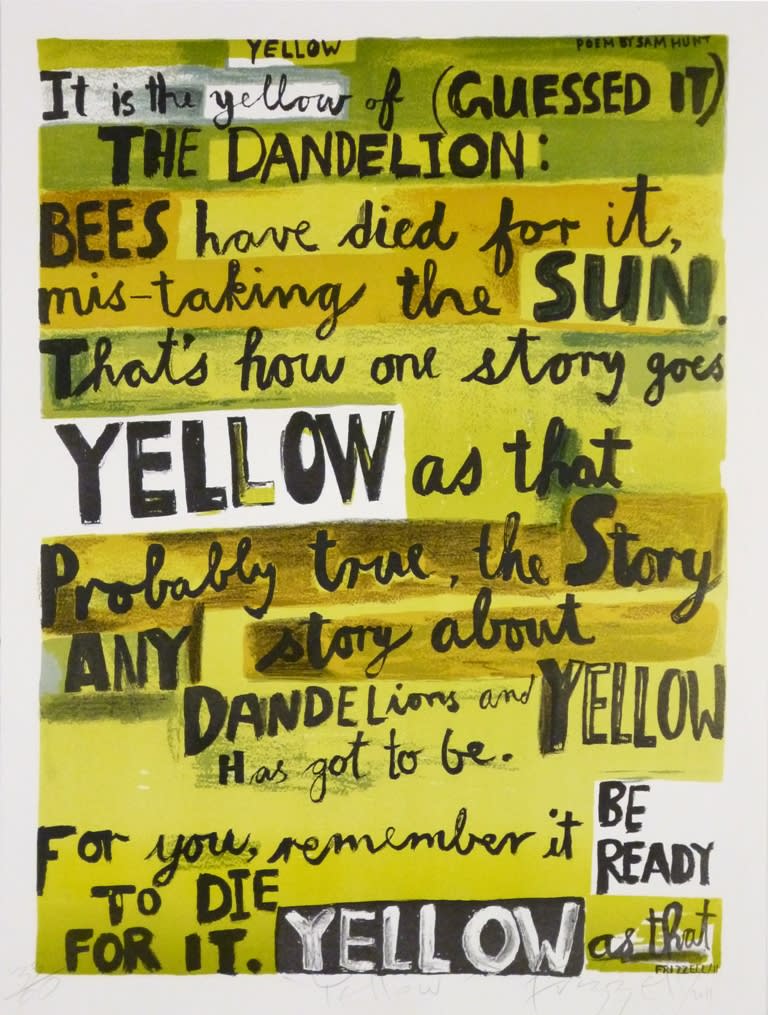 YELLOW
POEM BY SAM HUNT
It is the yellow of (GUESSED IT)
THE DANDELION:
BEES have died for it,
mis-taking the SUN.
That's how one story goes
YELLOW as that
Probably true, the Story
ANY story about
DANDELions and YELLOW
Has got to be.
For you, remember it BE
READY
TO DIE
FOR IT. YELLOW as that
FRIZZELL/11
Yellow Frizzell 2011